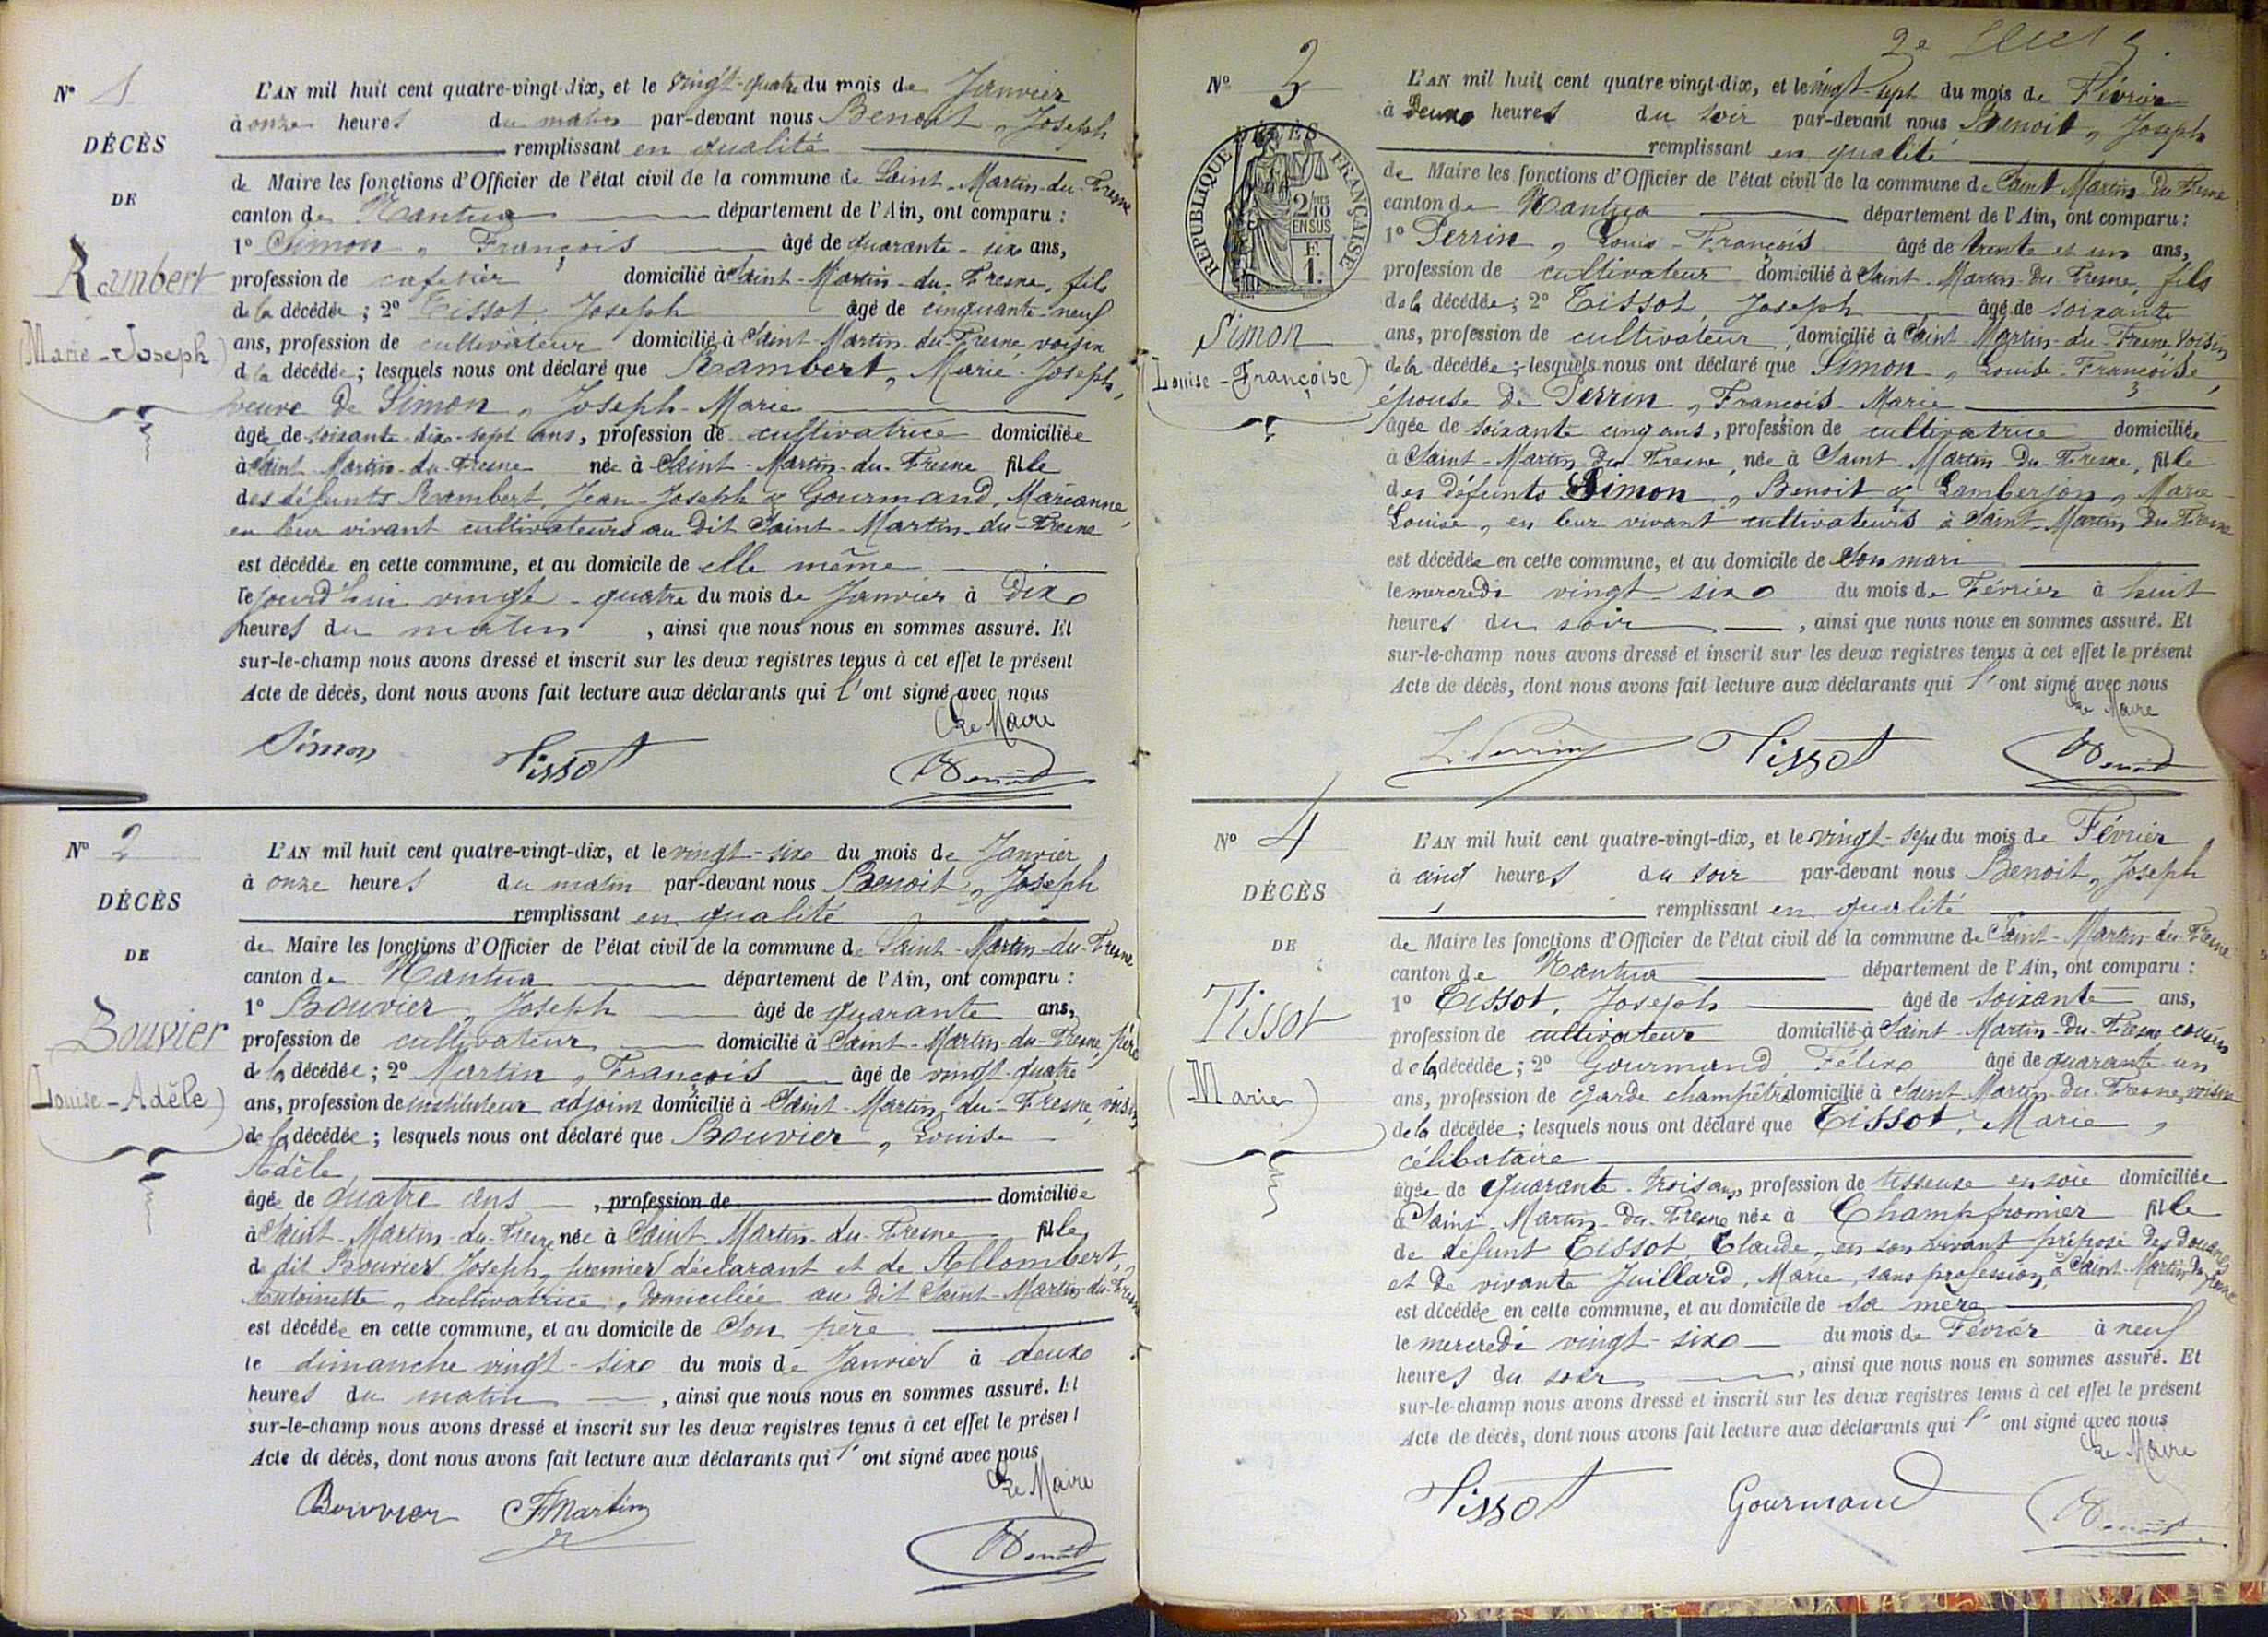 N° 1
DÉCÈS
DE
Rambert
(Marie-Joseph)
L'AN mil huit cent quatre-vingt-dix, et le vingt-quatre du mois de Janvier
à onze heures du matin par-devant nous Benoit, Joseph
remplissant en qualité
de Maire les fonctions d'Officier de l'état civil de la commune de Saint-Martin-du-Fresne
canton de Nantua département de l'Ain, ont comparu :
1° Simon, François âgé de quarante-six ans,
profession de cafetier domicilié à Saint-Martin-du-Fresne, fils
de la décédée ; 2° Tissot, Joseph âgé de cinquante-neuf
ans, profession de cultivateur domicilié à Saint-Martin-du-Fresne voisin
de la décédée ; lesquels nous ont déclaré que Rambert, Marie-Joseph,
veuve de Simon, Joseph-Marie
âgée de soixante-dix-sept ans, profession de cultivatrice domiciliée
à Saint-Martin-du-Fresne née à Saint-Martin-du-Fresne fille
des défunts Rambert, Jean-Joseph & Gourmand, Marianne,
en leur vivant cultivateurs au dit Saint-Martin-du-Fresne
est décédée en cette commune, et au domicile de elle même
le jourd'hui vingt-quatre du mois de Janvier à dix
heures du matin, ainsi que nous nous en sommes assuré. Et
sur-le-champ nous avons dressé et inscrit sur les deux registres tenus à cet effet le présent
Acte de décès, dont nous avons fait lecture aux déclarants qui l'ont signé avec nous
Le Maire
Simon Tissot Benoit
N° 2
DÉCÈS
DE
Bouvier
(Louise-Adèle)
L'AN mil huit cent quatre-vingt-dix, et le vingt-six du mois de Janvier
à onze heures du matin par-devant nous Benoit, Joseph
remplissant en qualité
de Maire les fonctions d'Officier de l'état civil de la commune de Saint-Martin-du-Fresne
canton de Nantua département de l'Ain, ont comparu :
1° Bouvier, Joseph âgé de quarante ans,
profession de cultivateur domicilié à Saint-Martin-du-Fresne, père
de la décédée ; 2° Martin, François âgé de vingt-quatre
ans, profession de instituteur adjoint domicilié à Saint-Martin-du-Fresne, voisin
de la décédée ; lesquels nous ont déclaré que Bouvier, Louise
Adèle
âgée de quatre ans, profession de domiciliée
à Saint-Martin-du-Fresne née à Saint-Martin-du-Fresne fille
de dit Bouvier Joseph, premier déclarant et de Allombert,
Antoinette, cultivatrice, domiciliée au dit Saint-Martin-du-Fresne
est décédée en cette commune, et au domicile de Son père
le dimanche vingt-six du mois de Janvier à deux
heures du matin, ainsi que nous nous en sommes assuré. Et
sur-le-champ nous avons dressé et inscrit sur les deux registres tenus à cet effet le présent
Acte de décès, dont nous avons fait lecture aux déclarants qui l'ont signé avec nous
Le Maire
Bouvier FMartin Benoit
N° 3
DÉCÈS
RÉPUBLIQUE FRANÇAISE
2/10 MES
EN SUS
F.
1.
Simon
(Louise-Françoise)
L'AN mil huit cent quatre-vingt-dix, et le vingt-sept du mois de Février
à deux heures du soir par-devant nous Benoit, Joseph
remplissant en qualité
de Maire les fonctions d'Officier de l'état civil de la commune de Saint-Martin-du-Fresne
canton de Nantua département de l'Ain, ont comparu :
1° Perrin, Louis-François âgé de trente et un ans,
profession de cultivateur domicilié à Saint-Martin-du-Fresne, fils
de la décédée ; 2° Tissot, Joseph âgé de soixante
ans, profession de cultivateur, domicilié à Saint-Martin-du-Fresne voisin
de la décédée ; lesquels nous ont déclaré que Simon, Louise-Françoise,
épouse de Perrin, François-Marie
âgée de soixante cinq ans, profession de cultivatrice domiciliée
à Saint-Martin-du-Fresne, née à Saint-Martin-du-Fresne, fille
des défunts Simon, Benoit & Lamberjon, Marie-
Louise, en leur vivant cultivateurs à Saint-Martin-du-Fresne
est décédée en cette commune, et au domicile de Son mari
le mercredi vingt-six du mois de Février à huit
heures du soir, ainsi que nous nous en sommes assuré. Et
sur-le-champ nous avons dressé et inscrit sur les deux registres tenus à cet effet le présent
Acte de décès, dont nous avons fait lecture aux déclarants qui l'ont signé avec nous
Le Maire
L. Perrin Tissot Benoit
N° 4
DÉCÈS
DE
Tissot
(Marie)
L'AN mil huit cent quatre-vingt-dix, et le vingt-sept du mois de Février
à cinq heures du soir par-devant nous Benoit, Joseph
remplissant en qualité
de Maire les fonctions d'Officier de l'état civil de la commune de Saint-Martin-du-Fresne
canton de Nantua département de l'Ain, ont comparu :
1° Tissot, Joseph âgé de soixante ans,
profession de cultivateur domicilié à Saint-Martin-du-Fresne cousin
de la décédée ; 2° Gourmand, Félix âgé de quarante-un
ans, profession de garde champêtre domicilié à Saint-Martin-du-Fresne, voisin
de la décédée ; lesquels nous ont déclaré que Tissot, Marie,
célibataire
âgée de quarante-trois ans, profession de tisseuse en soie domiciliée
à Saint-Martin-du-Fresne née à Champfromier fille
de défunt Tissot, Claude, en son vivant préposé des douanes
et de vivante Juillard, Marie, sans profession, à Saint-Martin-du-Fresne
est décédée en cette commune, et au domicile de sa mère
le mercredi vingt-six du mois de Février à neuf
heures du soir, ainsi que nous nous en sommes assuré. Et
sur-le-champ nous avons dressé et inscrit sur les deux registres tenus à cet effet le présent
Acte de décès, dont nous avons fait lecture aux déclarants qui l'ont signé avec nous
Le Maire
Tissot Gourmand Benoit